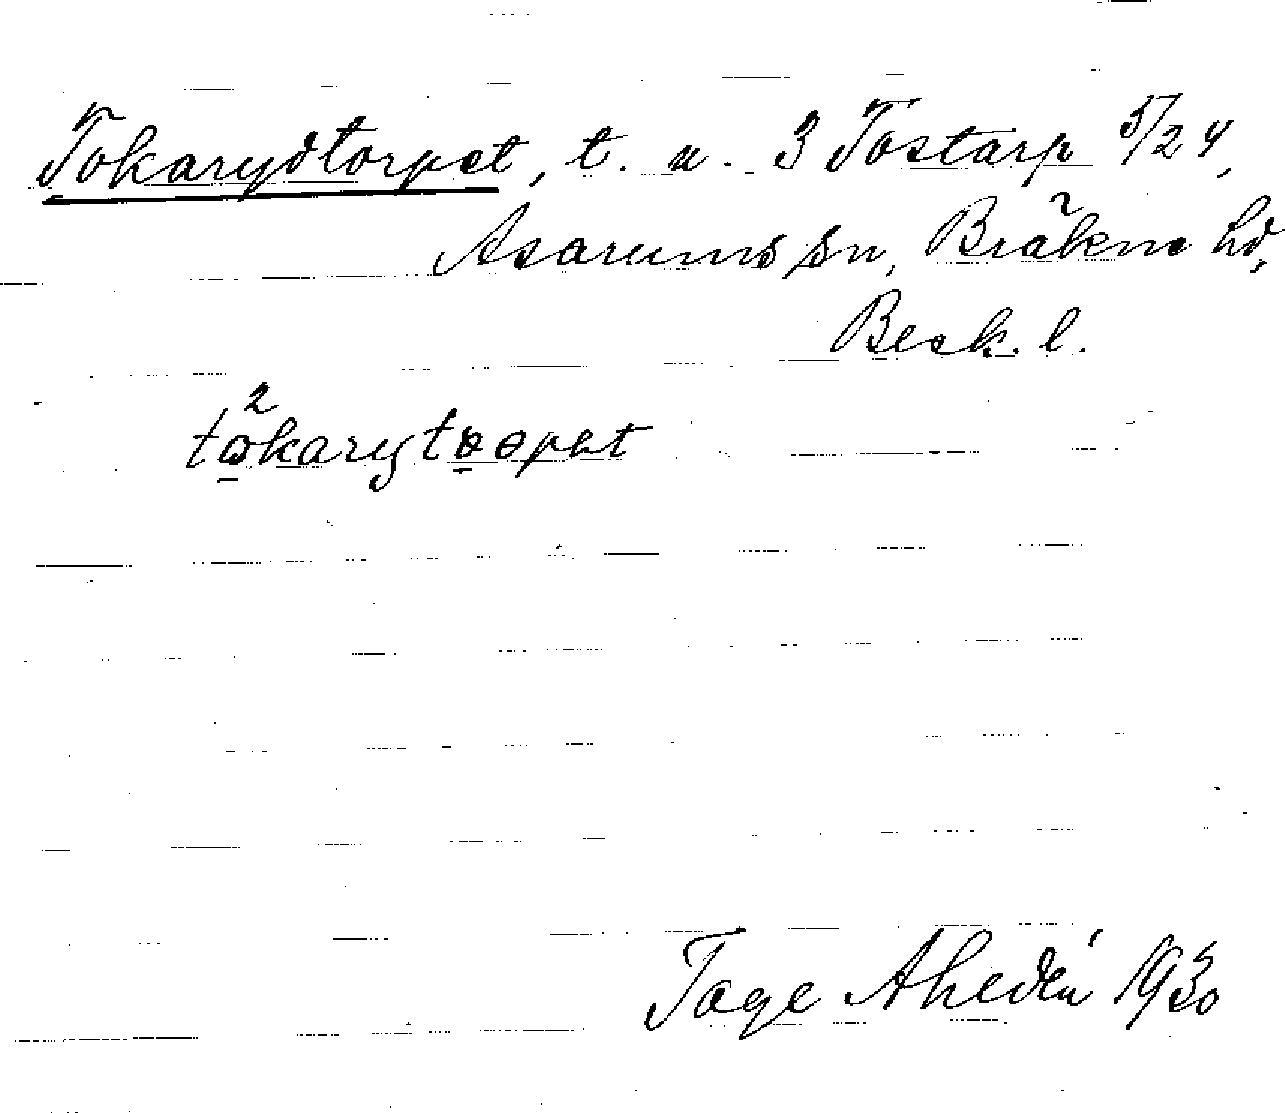 Tokarydtorpet, t. u. 3 Tostarp 5/24,
Asarums sn, Bräkne hd,
Blek. l.
tò̱²karyto̱ɵpet
Tage Ahldén 1930